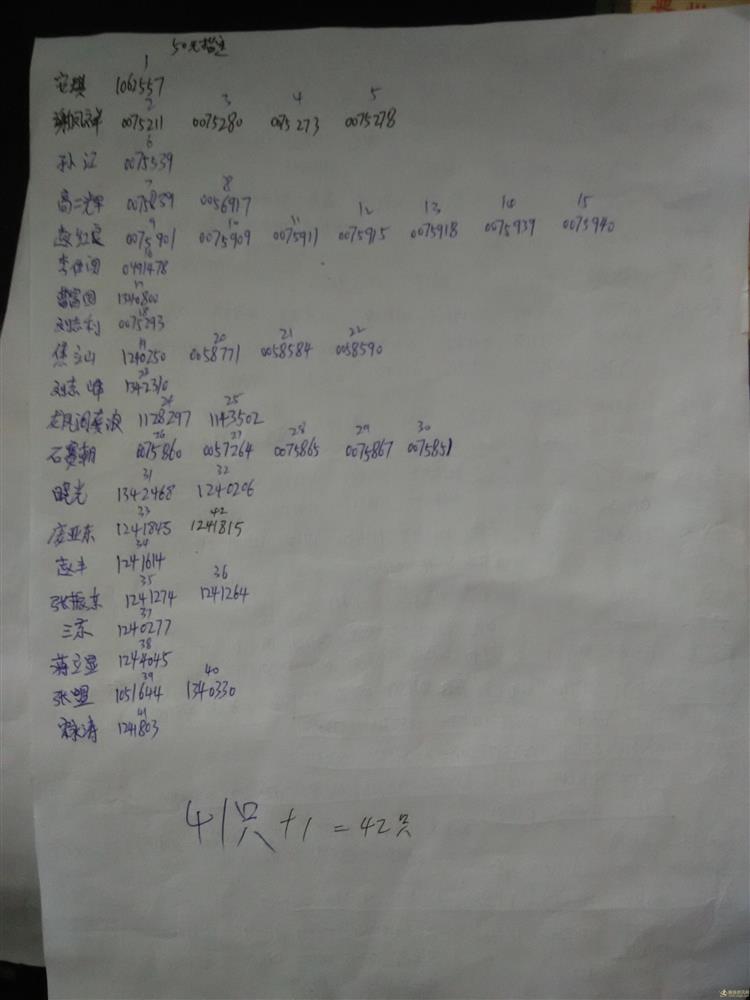 50元指定
1
安琪 1062557
2 3 4 5
0075211 0075280 0075273 0075278
6
孙江 0075539
7 8
高二光 0075859 0056917
9 10 11 12 13 14 15
0075901 0075909 0075911 0075915 0075918 0075939 0075940
16
0491478
17
曹富国 1340800
18
刘志利 0075293
19 20 21 22
焦立山 1240250 0058771 0058584 0058590
23
刘志峰 1342310
24 25
1128297 1143502
26 27 28 29 30
石赛朝 0075860 0057264 0075865 0075867 0075851
31 32
曙光 1342468 1240206
33 42
庞亚东 1241845 1241815
34
赵丰 1241614
35 36
张振东 1241274 1241264
37
三东 1240277
38
蒋立显 1244045
39 40
张盟 1051644 1340330
41
1241803
41只+1=42只